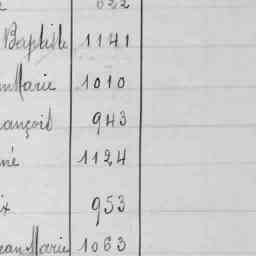 622
Baptiste 1141
Marie 1010
ançois 943
né 1124
ix 953
ean Marie 1063